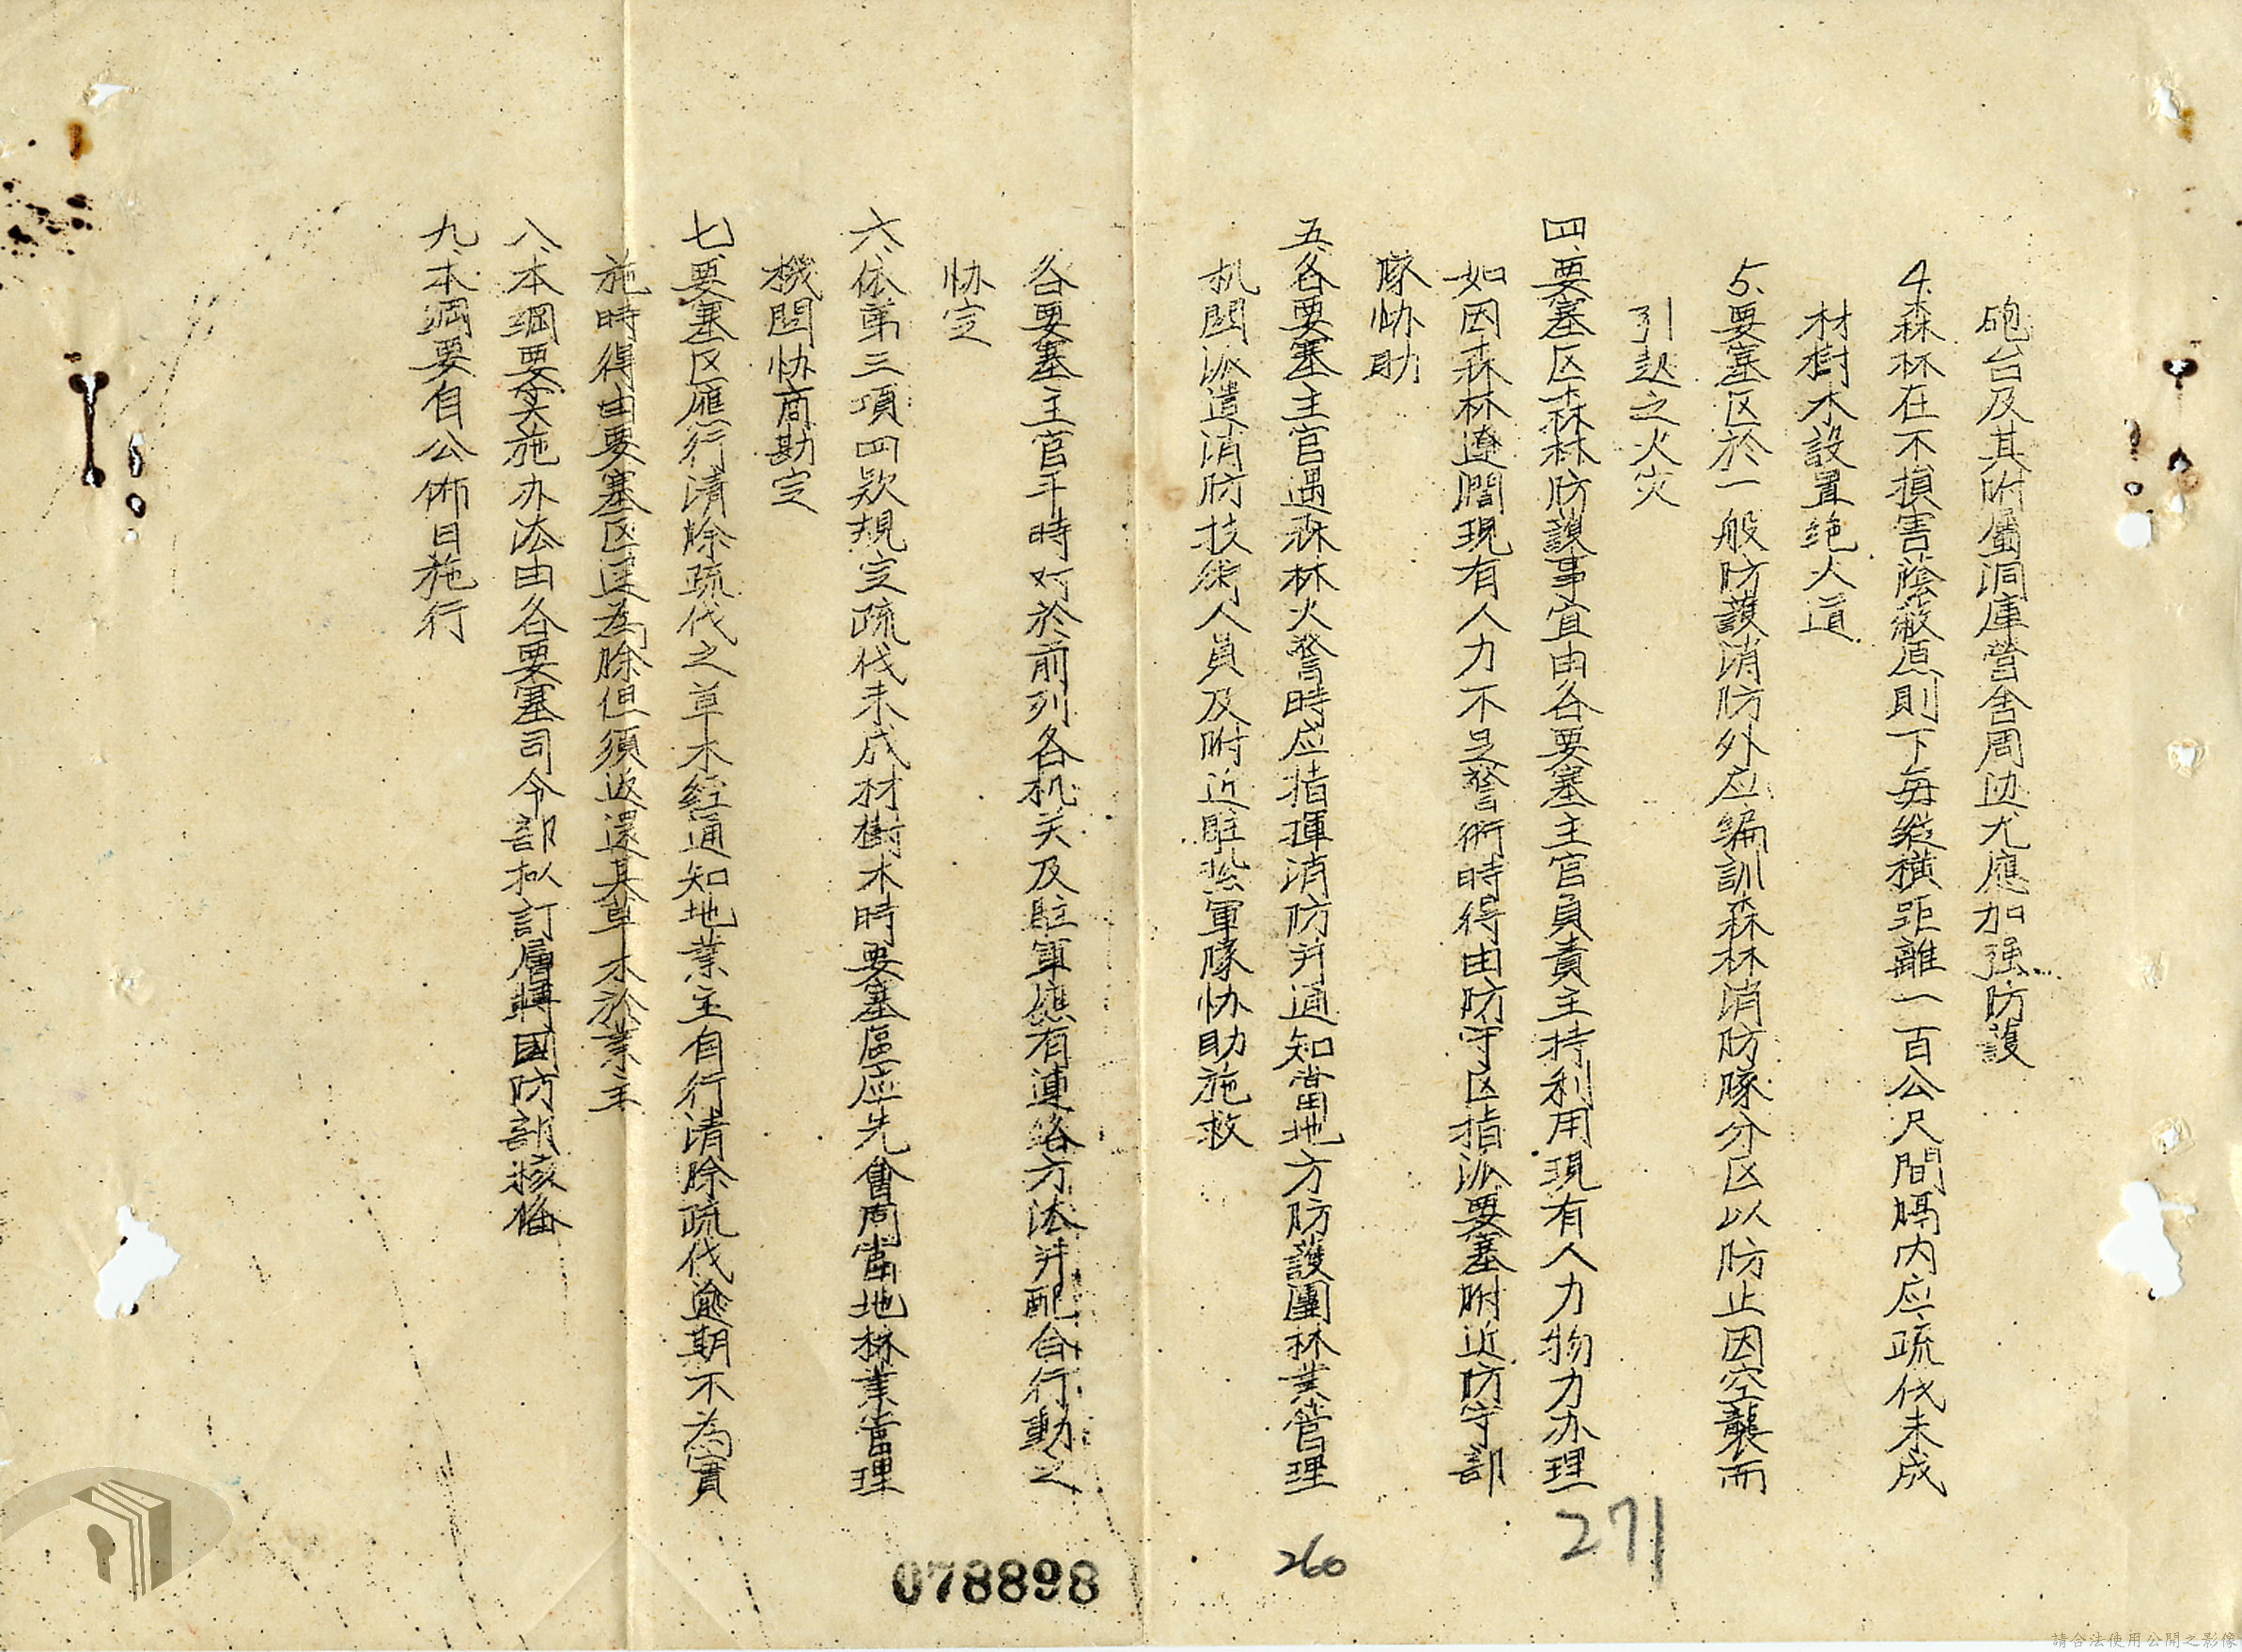 砲台及其附屬洞庫營舍周边尤應加强防護
4.森林在不損害蔭蔽原則下每縱橫距離一百公尺間隔内应疏伐未成
材樹木設置绝火道
5.要塞区於一般防護消防外应编訓森林消防隊分区以防止因空襲而
引起之火灾
四、要塞区森林防護事宜由各要塞主官負責主持利用現有人力物力办理
如因森林遼闊現有人力不足警衛時得由防守区指派要塞附近防守部
隊协助
五、各要塞主官遇森林火警時应指揮消防并通知當地方防護團林業管理
机関派遣消防技術人員及附近駐紮軍隊协助施救
各要塞主官平時对於前列各机关及駐軍應有連絡方法并配合行動之
协定
六、依第三項四款規定疏伐未成材樹木時要塞區应先會同當地林業管理
機関协商勘定
七、要塞区應行清除疏伐之草木經通知地業主自行清除疏伐逾期不為實
施時得由要塞区逕為除但須返還其草木於業主
八、本綱要实施办法由各要塞司令部拟訂層轉國防部核俻
九、本綱要自公佈日施行
271
260
078898
請合法使用公開之影像